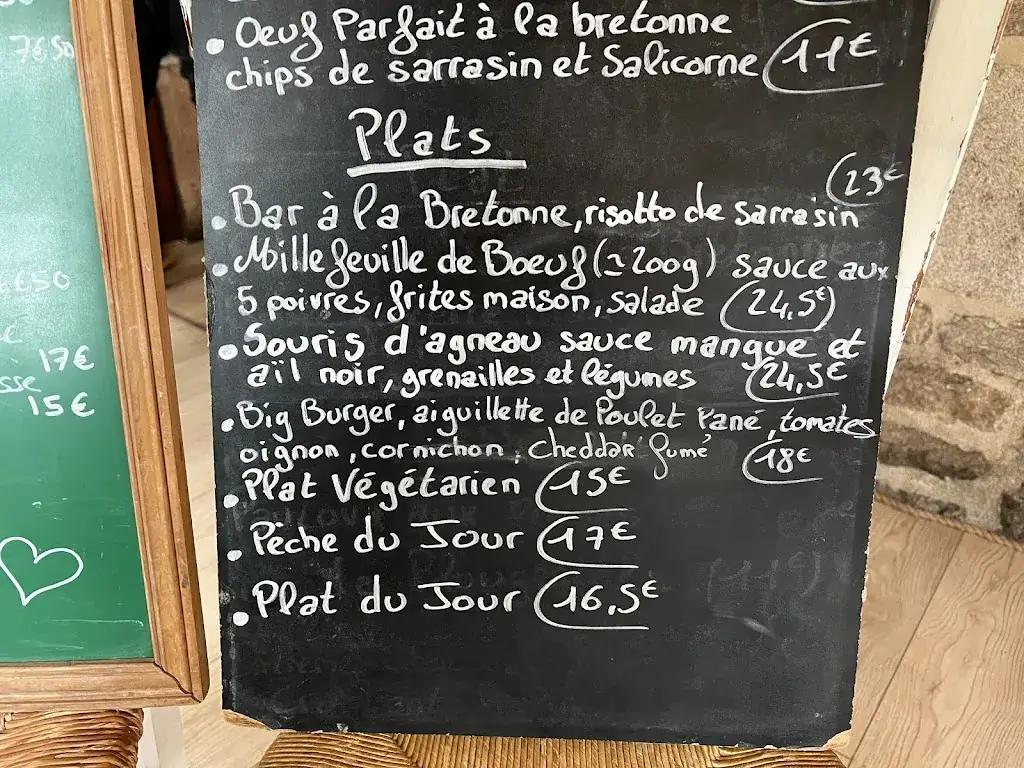 • Oeuf Parfait à la bretonne
chips de sarrasin et Salicorne 11€
Plats
23€
• Bar à la Bretonne, risotto de sarrasin
• Mille feuille de Boeuf (≃200g) sauce aux
5 poivres, frites maison, salade 24,5€
• Souris d'agneau sauce mangue et
aïl noir, grenailles et légumes 24,5€
• Big Burger, aiguillette de Poulet Pané, tomates
oignon, cornichon, cheddar fumé 18€
• Plat Végétarien 15€
• Pêche du Jour 17€
• Plat du Jour 16,5€
17€
15€